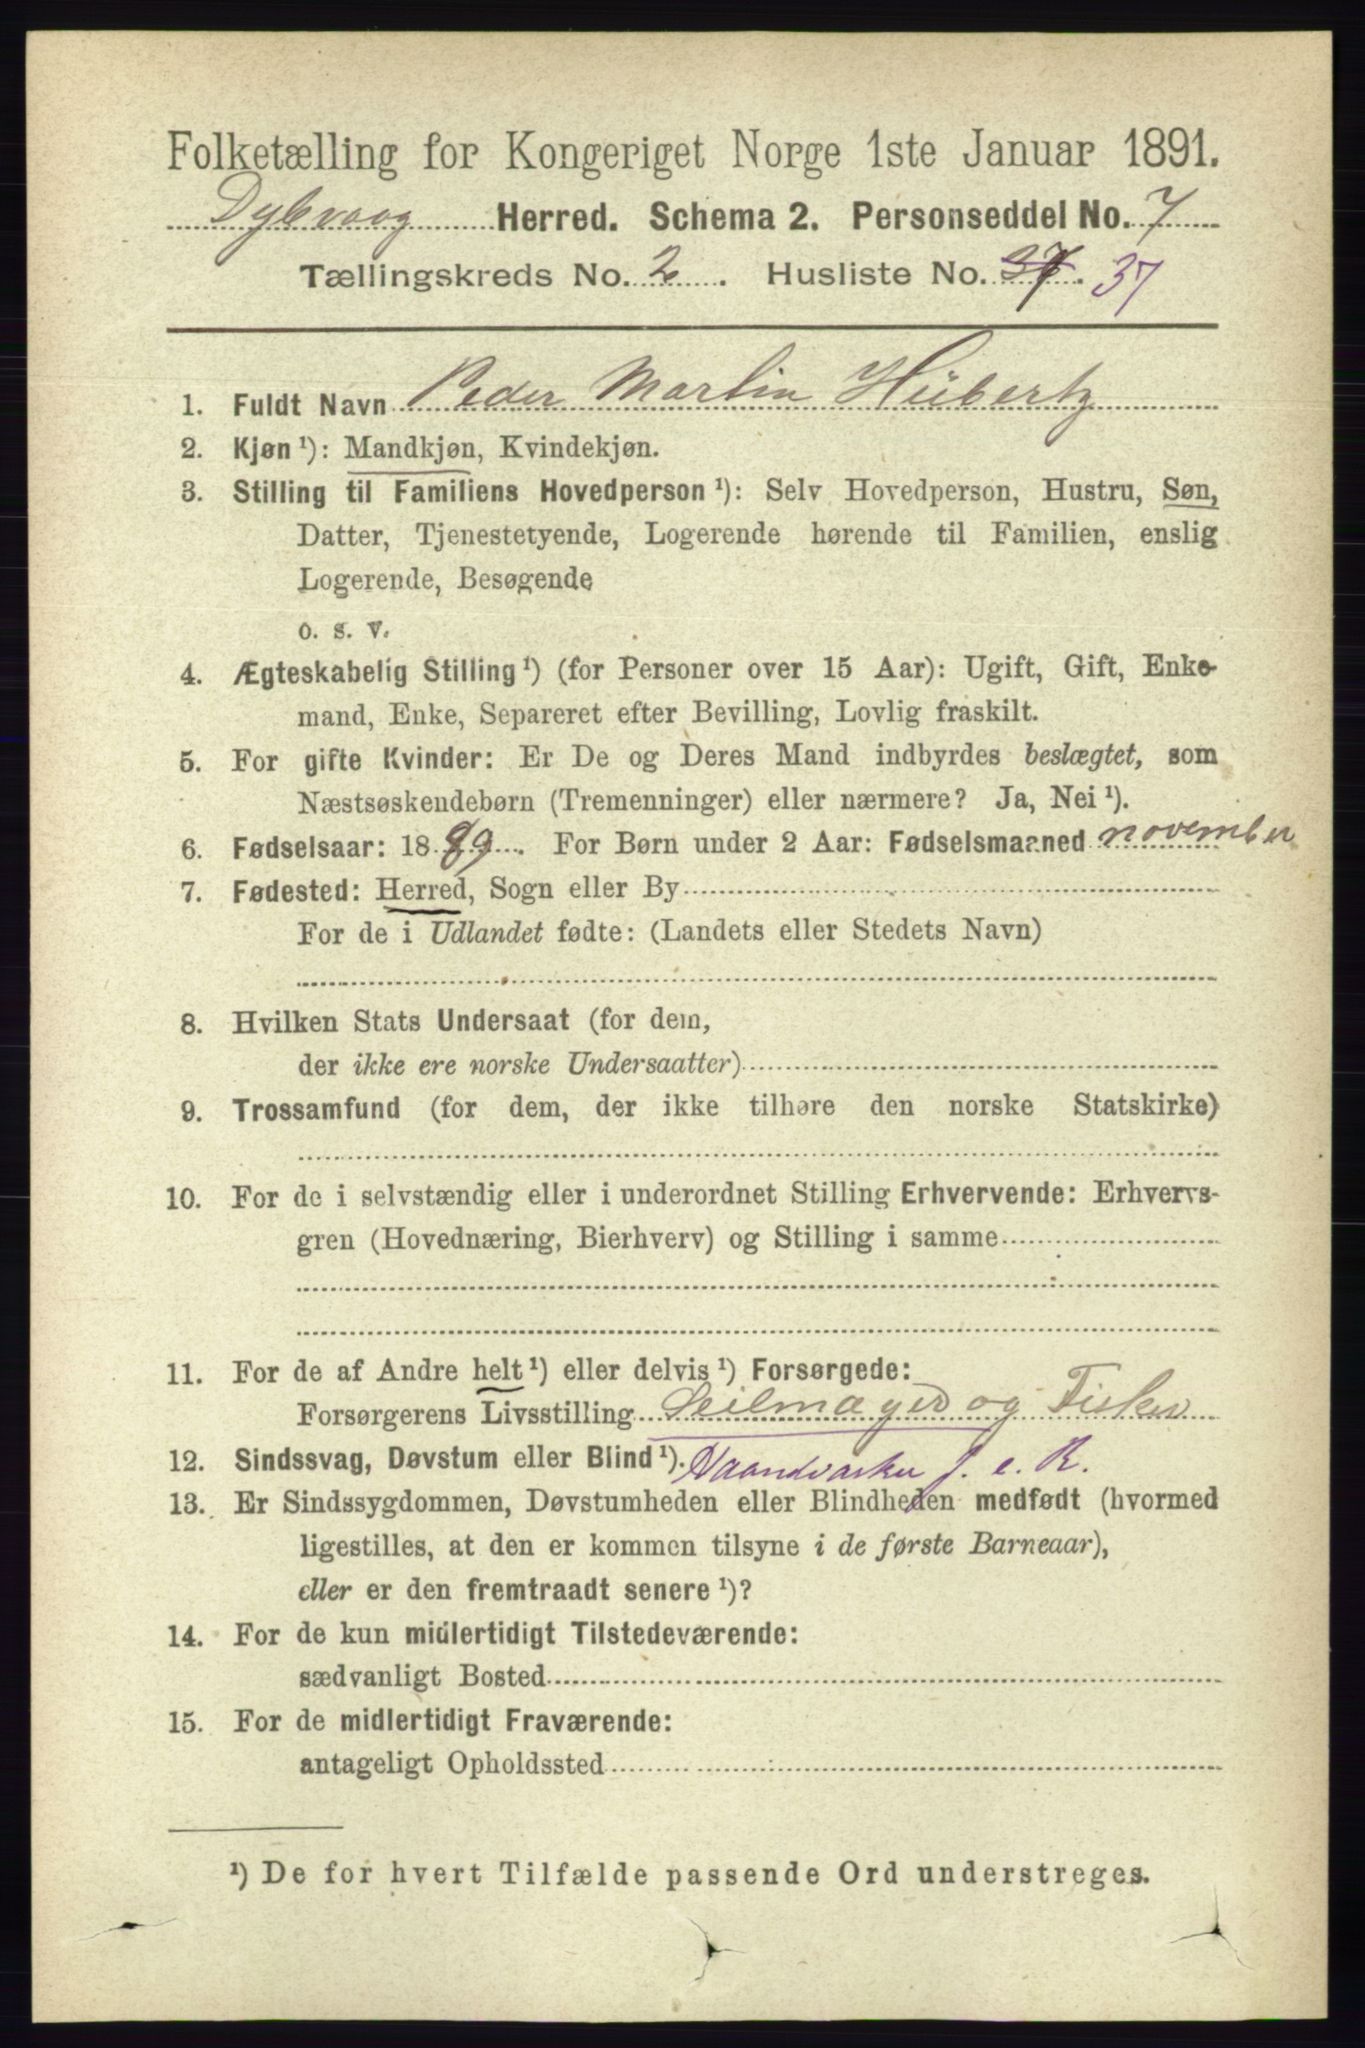 Folketælling for Kongeriget Norge 1ste Januar 1891.
Dybvaag Herred. Schema 2. Personseddel No. 7
Tællingskreds No. 2. Husliste No. 37. 37
1. Fuldt Navn Peder Martin Hübertz
2. Kjøn ¹): Mandkjøn, Kvindekjøn.
3. Stilling til Familiens Hovedperson ¹): Selv Hovedperson, Hustru, Søn,
Datter, Tjenestetyende, Logerende hørende til Familien, enslig
Logerende, Besøgende
o. s. v.
4. Ægteskabelig Stilling ¹) (for Personer over 15 Aar): Ugift, Gift, Enke-
mand, Enke, Separeret efter Bevilling, Lovlig fraskilt.
5. For gifte Kvinder: Er De og Deres Mand indbyrdes beslægtet, som
Næstsøskendebørn (Tremenninger) eller nærmere? Ja, Nei ¹).
6. Fødselsaar: 1889. For Børn under 2 Aar: Fødselsmaaned november
7. Fødested: Herred, Sogn eller By
For de i Udlandet fødte: (Landets eller Stedets Navn)
8. Hvilken Stats Undersaat (for dem,
der ikke ere norske Undersaatter)
9. Trossamfund (for dem, der ikke tilhøre den norske Statskirke)
10. For de i selvstændig eller i underordnet Stilling Erhvervende: Erhvervs-
gren (Hovednæring, Bierhverv) og Stilling i samme
11. For de af Andre helt ¹) eller delvis ¹) Forsørgede:
Forsørgerens Livsstilling Seilmager og Fisker
12. Sindssvag, Døvstum eller Blind ¹). Haandværker f. e. R.
13. Er Sindssygdommen, Døvstumheden eller Blindheden medfødt (hvormed
ligestilles, at den er kommen tilsyne i de første Barneaar),
eller er den fremtraadt senere ¹)?
14. For de kun midlertidigt Tilstedeværende:
sædvanligt Bosted
15. For de midlertidigt Fraværende:
antageligt Opholdssted
¹) De for hvert Tilfælde passende Ord understreges.